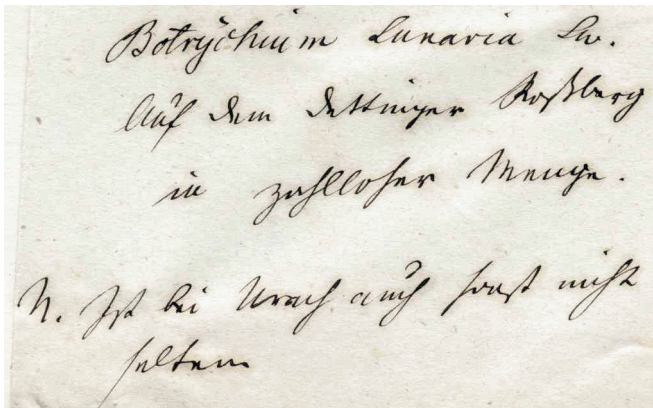 Botrÿchium Lunaria Sw.
Auf dem Dettinger Roßberg
in zahlloser Menge.
N. Ist bei Urach auch sonst nicht
selten